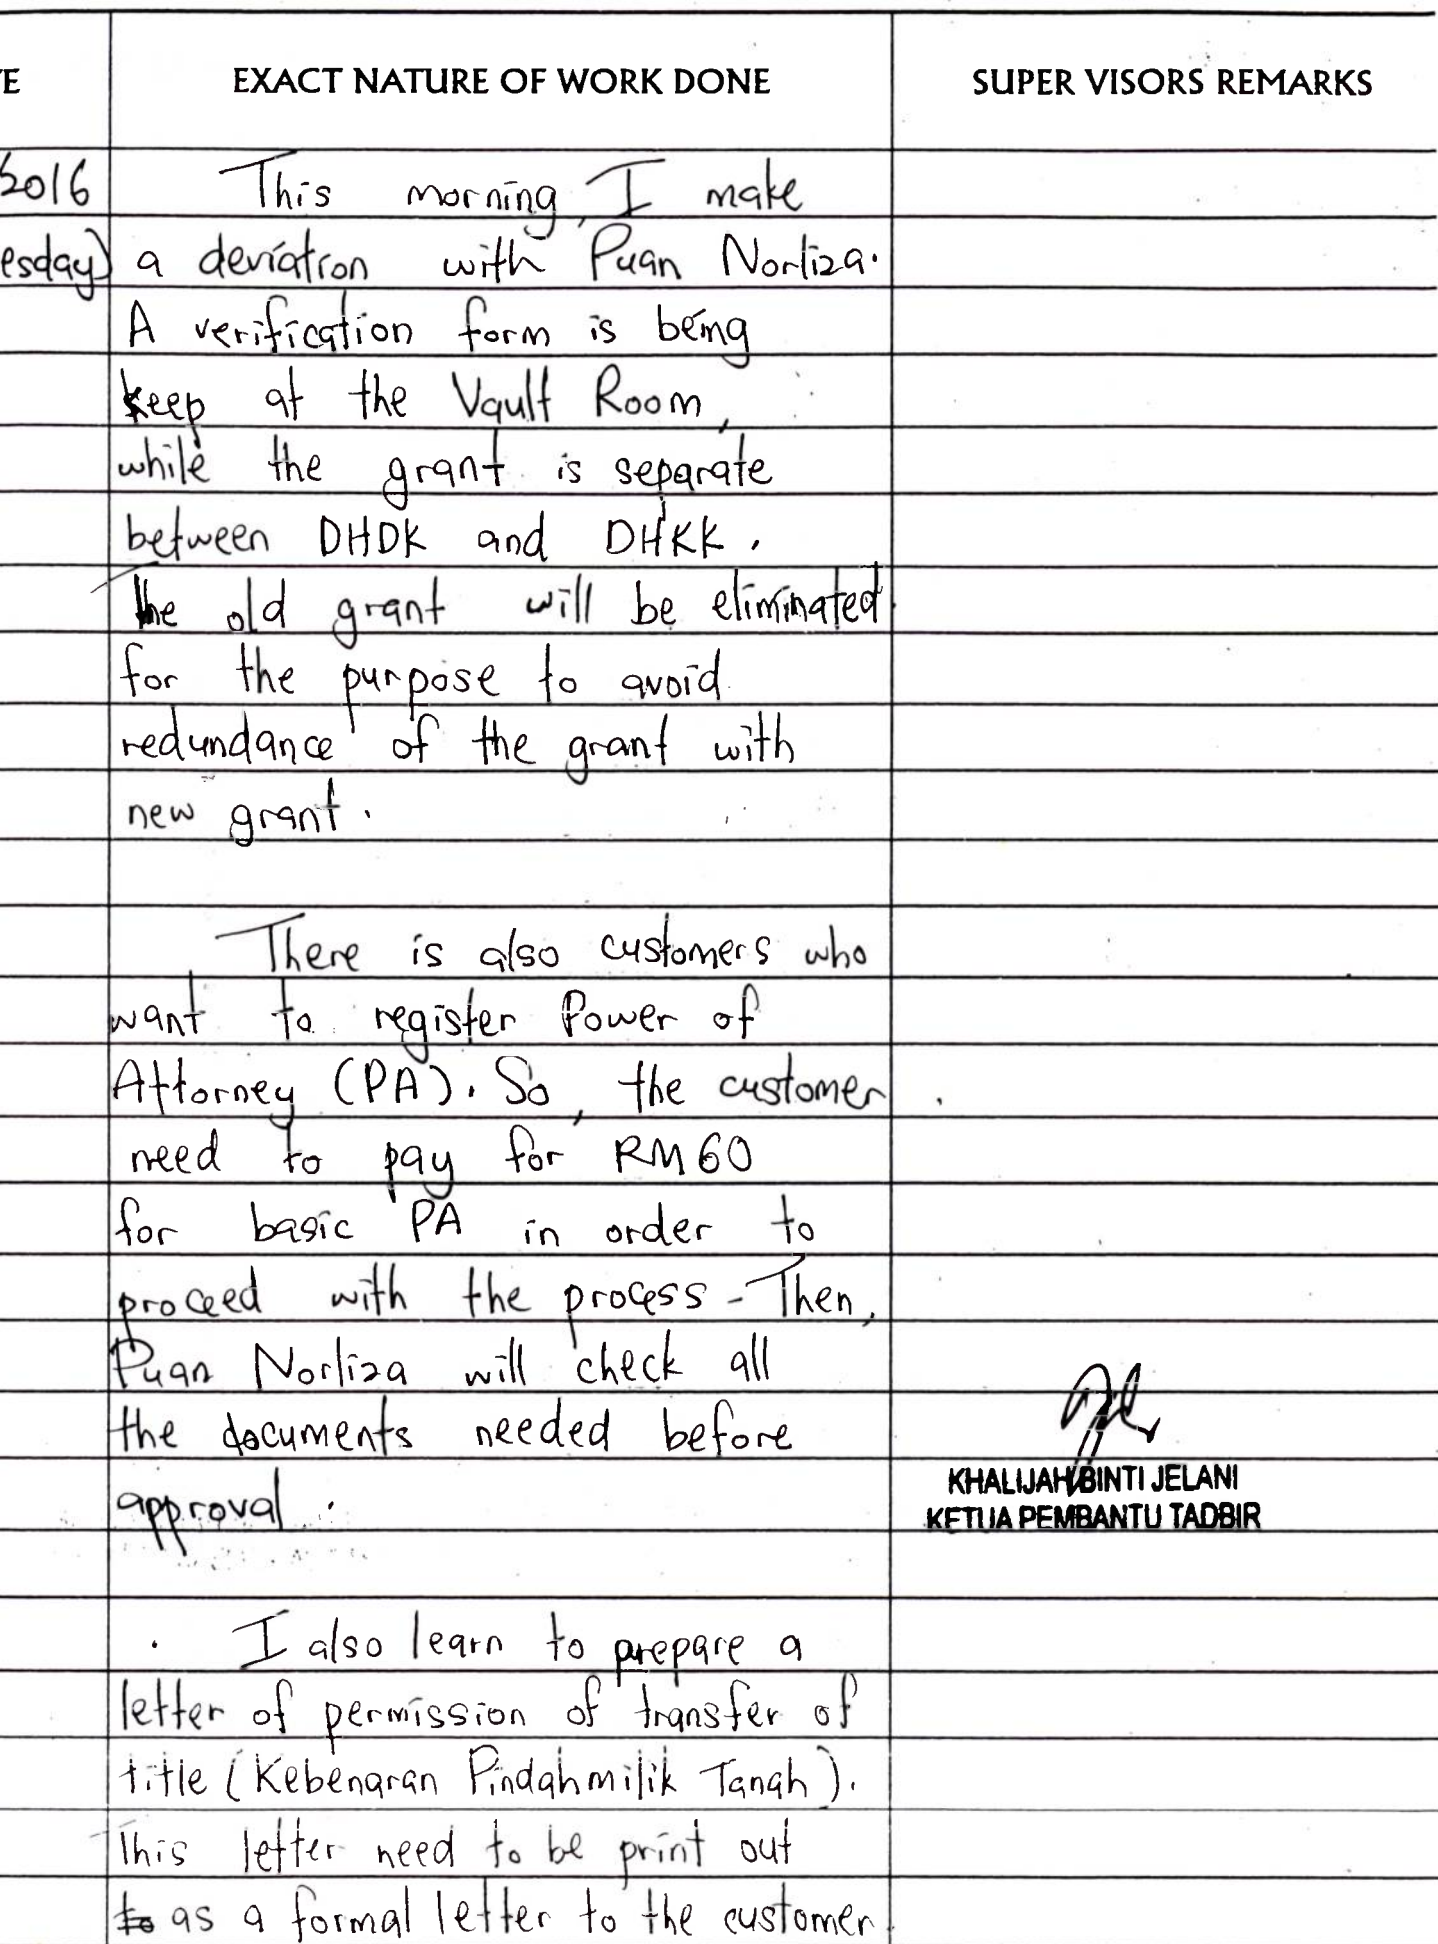 E EXACT NATURE OF WORK DONE SUPER VISORS REMARKS
2016 This morning, I make
esday) a deviation with Puan Norliza.
A verification form is being
keep at the Vault Room,
while the grant is separate
between DHDK and DHKK.
The old grant will be eliminated
for the purpose to avoid
redundance of the grant with
new grant.
There is also customers who
want to register Power of
Attorney (PA). So, the customer
need to pay for RM60
for basic PA in order to
proceed with the process. Then,
Puan Norliza will check all
the documents needed before
approval.
KHALIJAH BINTI JELANI
KETUA PEMBANTU TADBIR
I also learn to prepare a
letter of permission of transfer of
title (Kebenaran Pindahmilik Tanah).
This letter need to be print out
to as a formal letter to the customer.